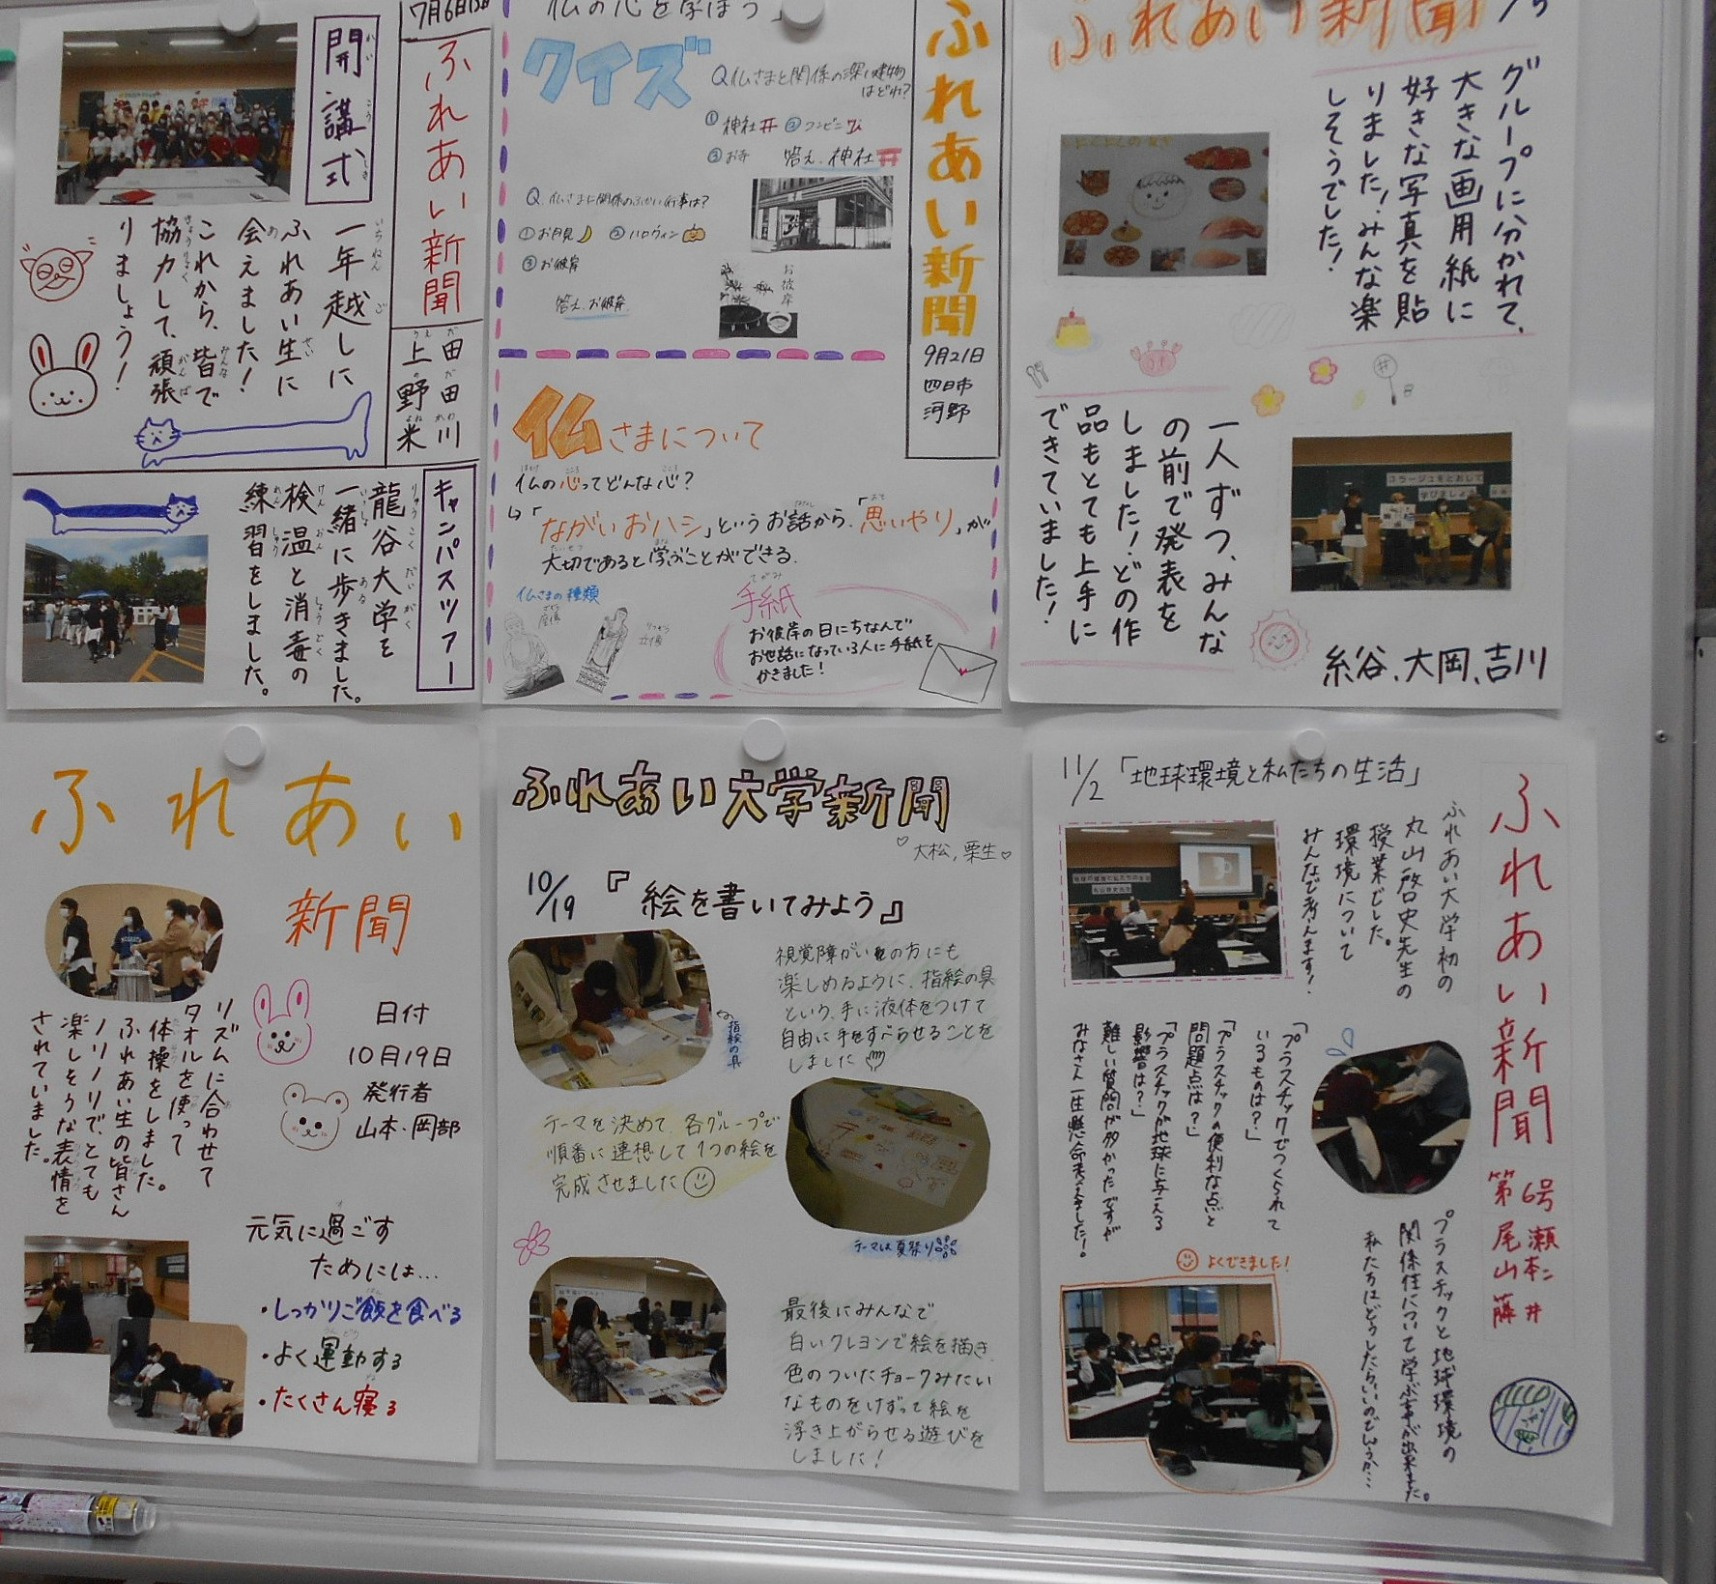 7月6日
ふれあい新聞
田川
上野
米
開講式
一年越しに
ふれあい生に
会えました!
これから、皆で
協力して、頑張
りましょう!
キャンパスツアー
龍谷大学を
一緒に歩きました。
検温と消毒の
練習をしました。
仏の心を学ぼう」
ふれあい新聞
9月21日
四日市
河野
クイズ
Q仏さまと関係の深い建物
はどれ?
①神社 ②コンビニ
③お寺 答え.神社
Q.仏さまに関係のふかい行事は?
①お月見 ②ハロウィン
③お彼岸
答え.お彼岸
お彼岸
仏さまについて
仏の心ってどんな心?
↳「ながいおハシ」というお話から、「思いやり」が
大切であると学ぶことができる.
仏さまの種類
座像
立像
手紙
お彼岸の日にちなんで
お世話になっている人に手紙を
かきました!
ふれあい新聞
グループに分かれて、
大きな画用紙に
好きな写真を貼
りました!みんな楽
しそうでした!
一人ずつ、みんな
の前で発表を
しました!どの作
品もとても上手に
できていました!
コラージュをとおして
学びましょう
糸谷、大岡、吉川
ふれあい
新聞
日付
10月19日
発行者
山本・岡部
リズムに合わせて
タオルを使って
体操をしました。
ふれあい生の皆さん
ノリノリで、とても
楽しそうな表情を
されていました。
元気に過ごす
ためには…
・しっかりご飯を食べる
・よく運動する
・たくさん寝る
ふれあい大学新聞
♡大松,栗生♡
10/19『絵を書いてみよう』
視覚障がいの方にも
楽しめるように、指絵の具
という、手に液体をつけて
自由に手をすべらせることを
しました
指絵の具
テーマを決めて、各グループで
順番に連想して1つの絵を
完成させました
テーマは夏祭り
最後にみんなで
白いクレヨンで絵を描き、
色のついたチョークみたい
なものをけずって絵を
浮き上がらせる遊びを
しました!
11/2「地球環境と私たちの生活」
ふれあい新聞
第6号
瀬尾
山本
藤井
ふれあい大学初の
丸山啓史先生の
授業でした。
環境について
みんなで考えます!
「プラスチックでつくられて
いるものは?」
「プラスチックの便利な点と
問題点は?」
「プラスチックが地球に与える
影響は?」
難しい質問が多かったですが
みなさん一生懸命考えました!
よくできました!
プラスチックと地球環境の
関係性について学ぶ事が出来ました。
私たちはどうしたらいいのでしょうか…